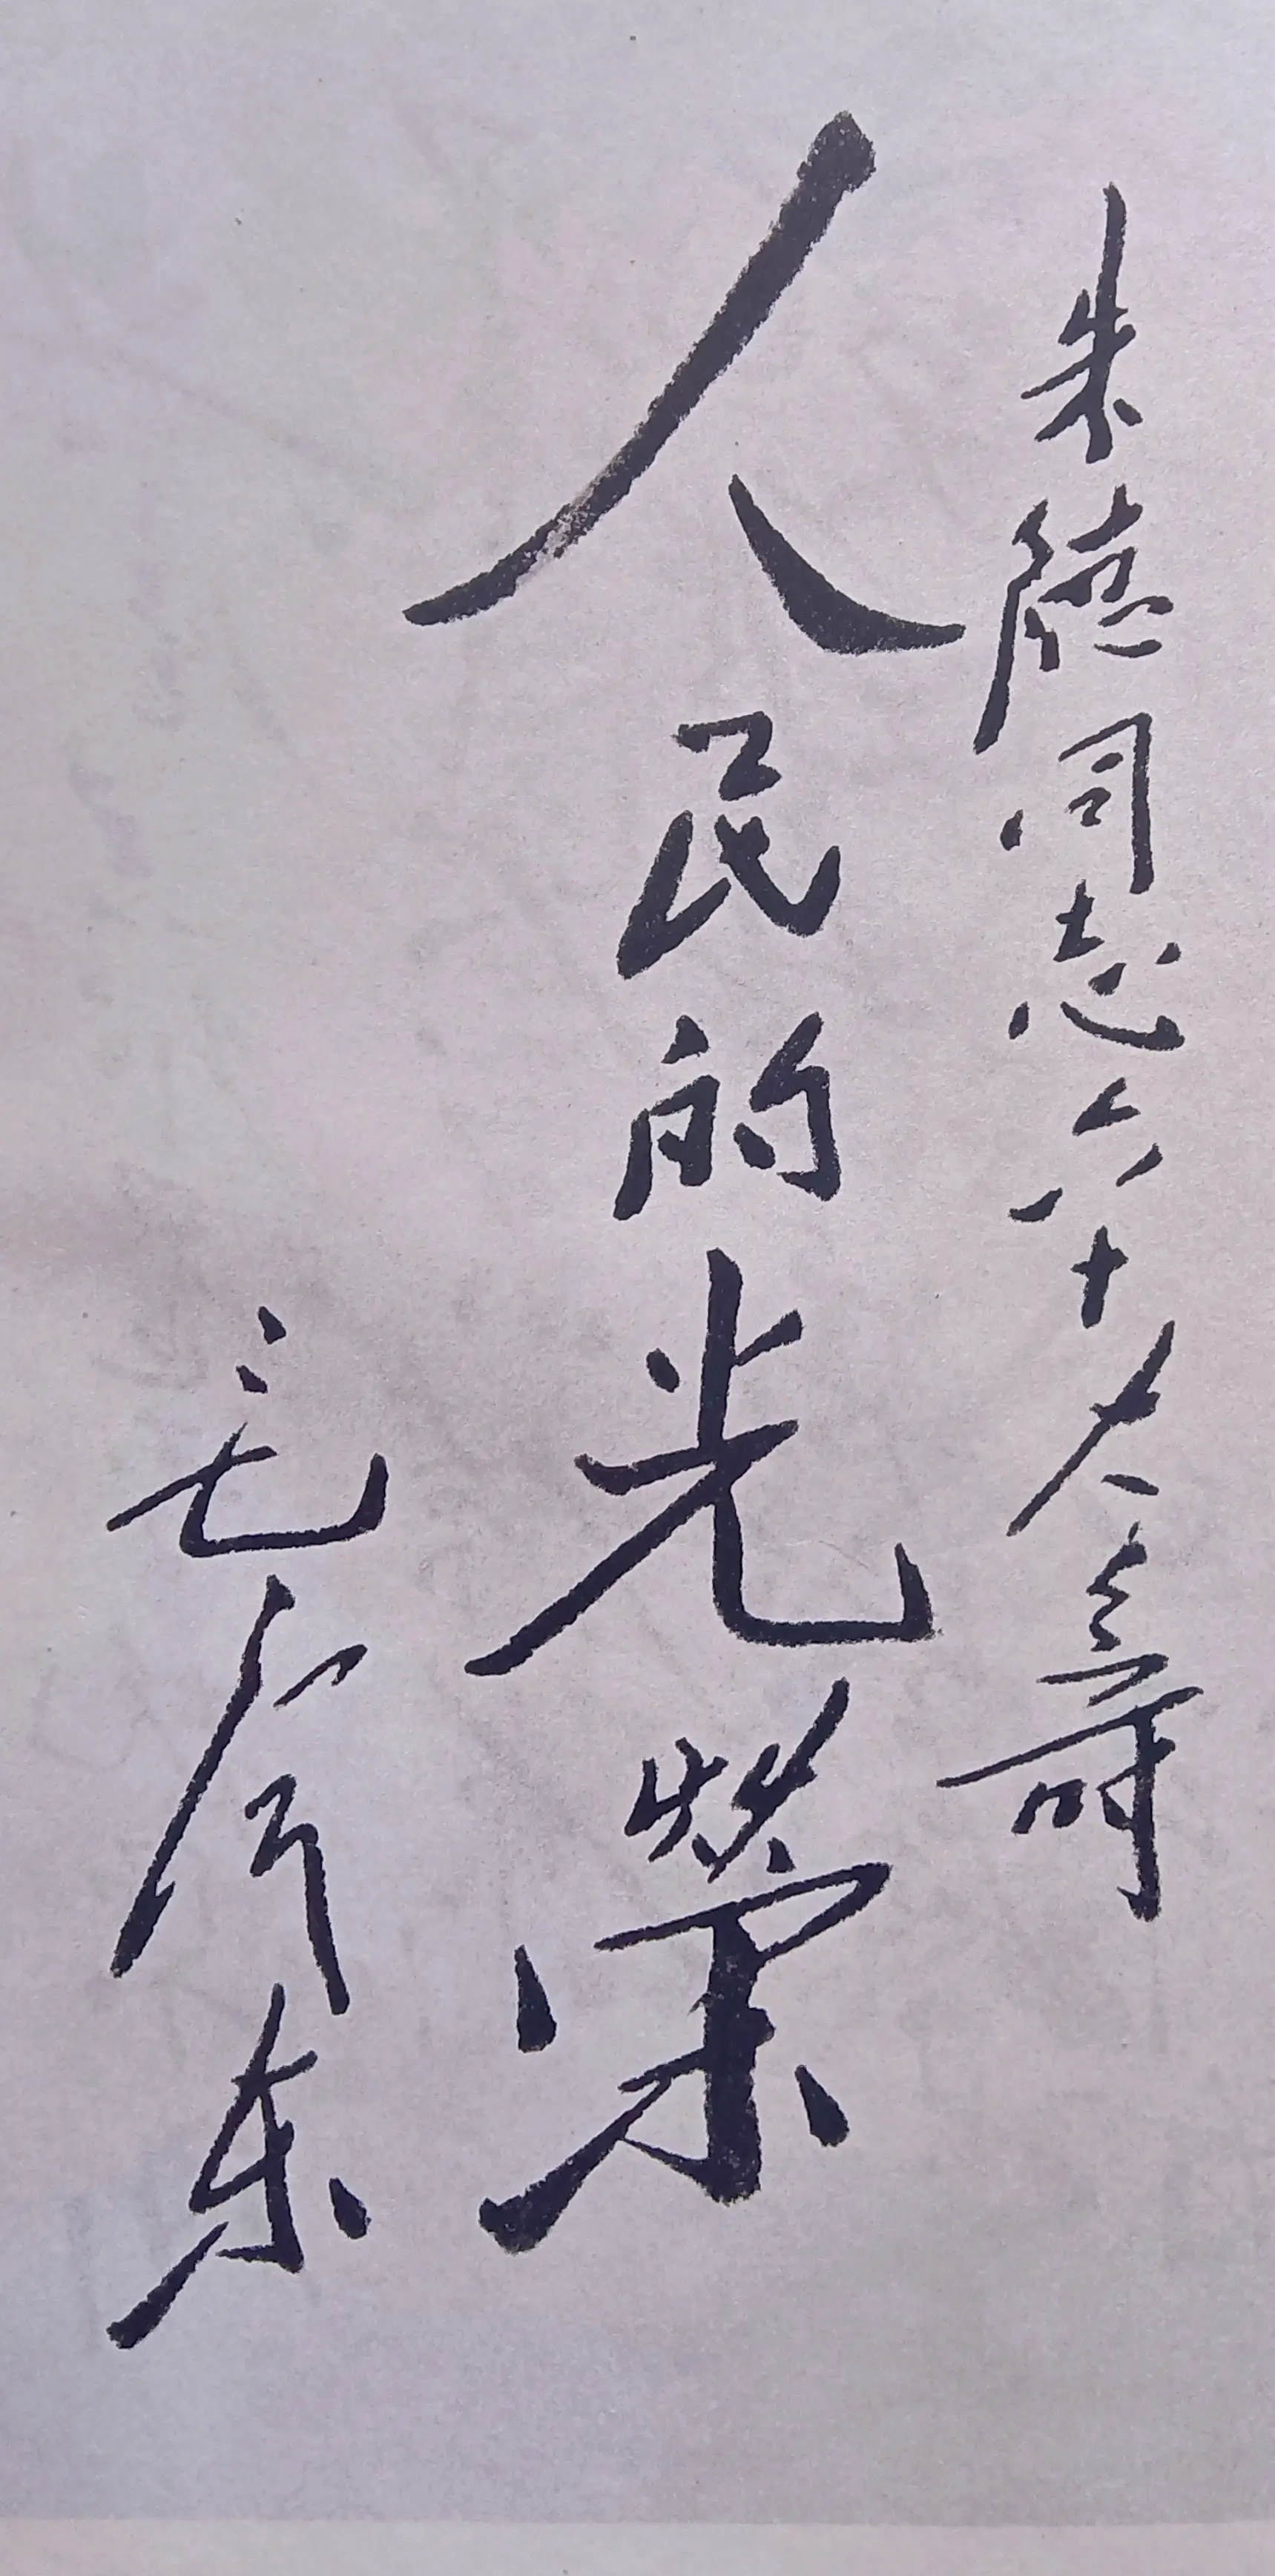 朱德同志六十大寿
人民的光荣
毛泽东